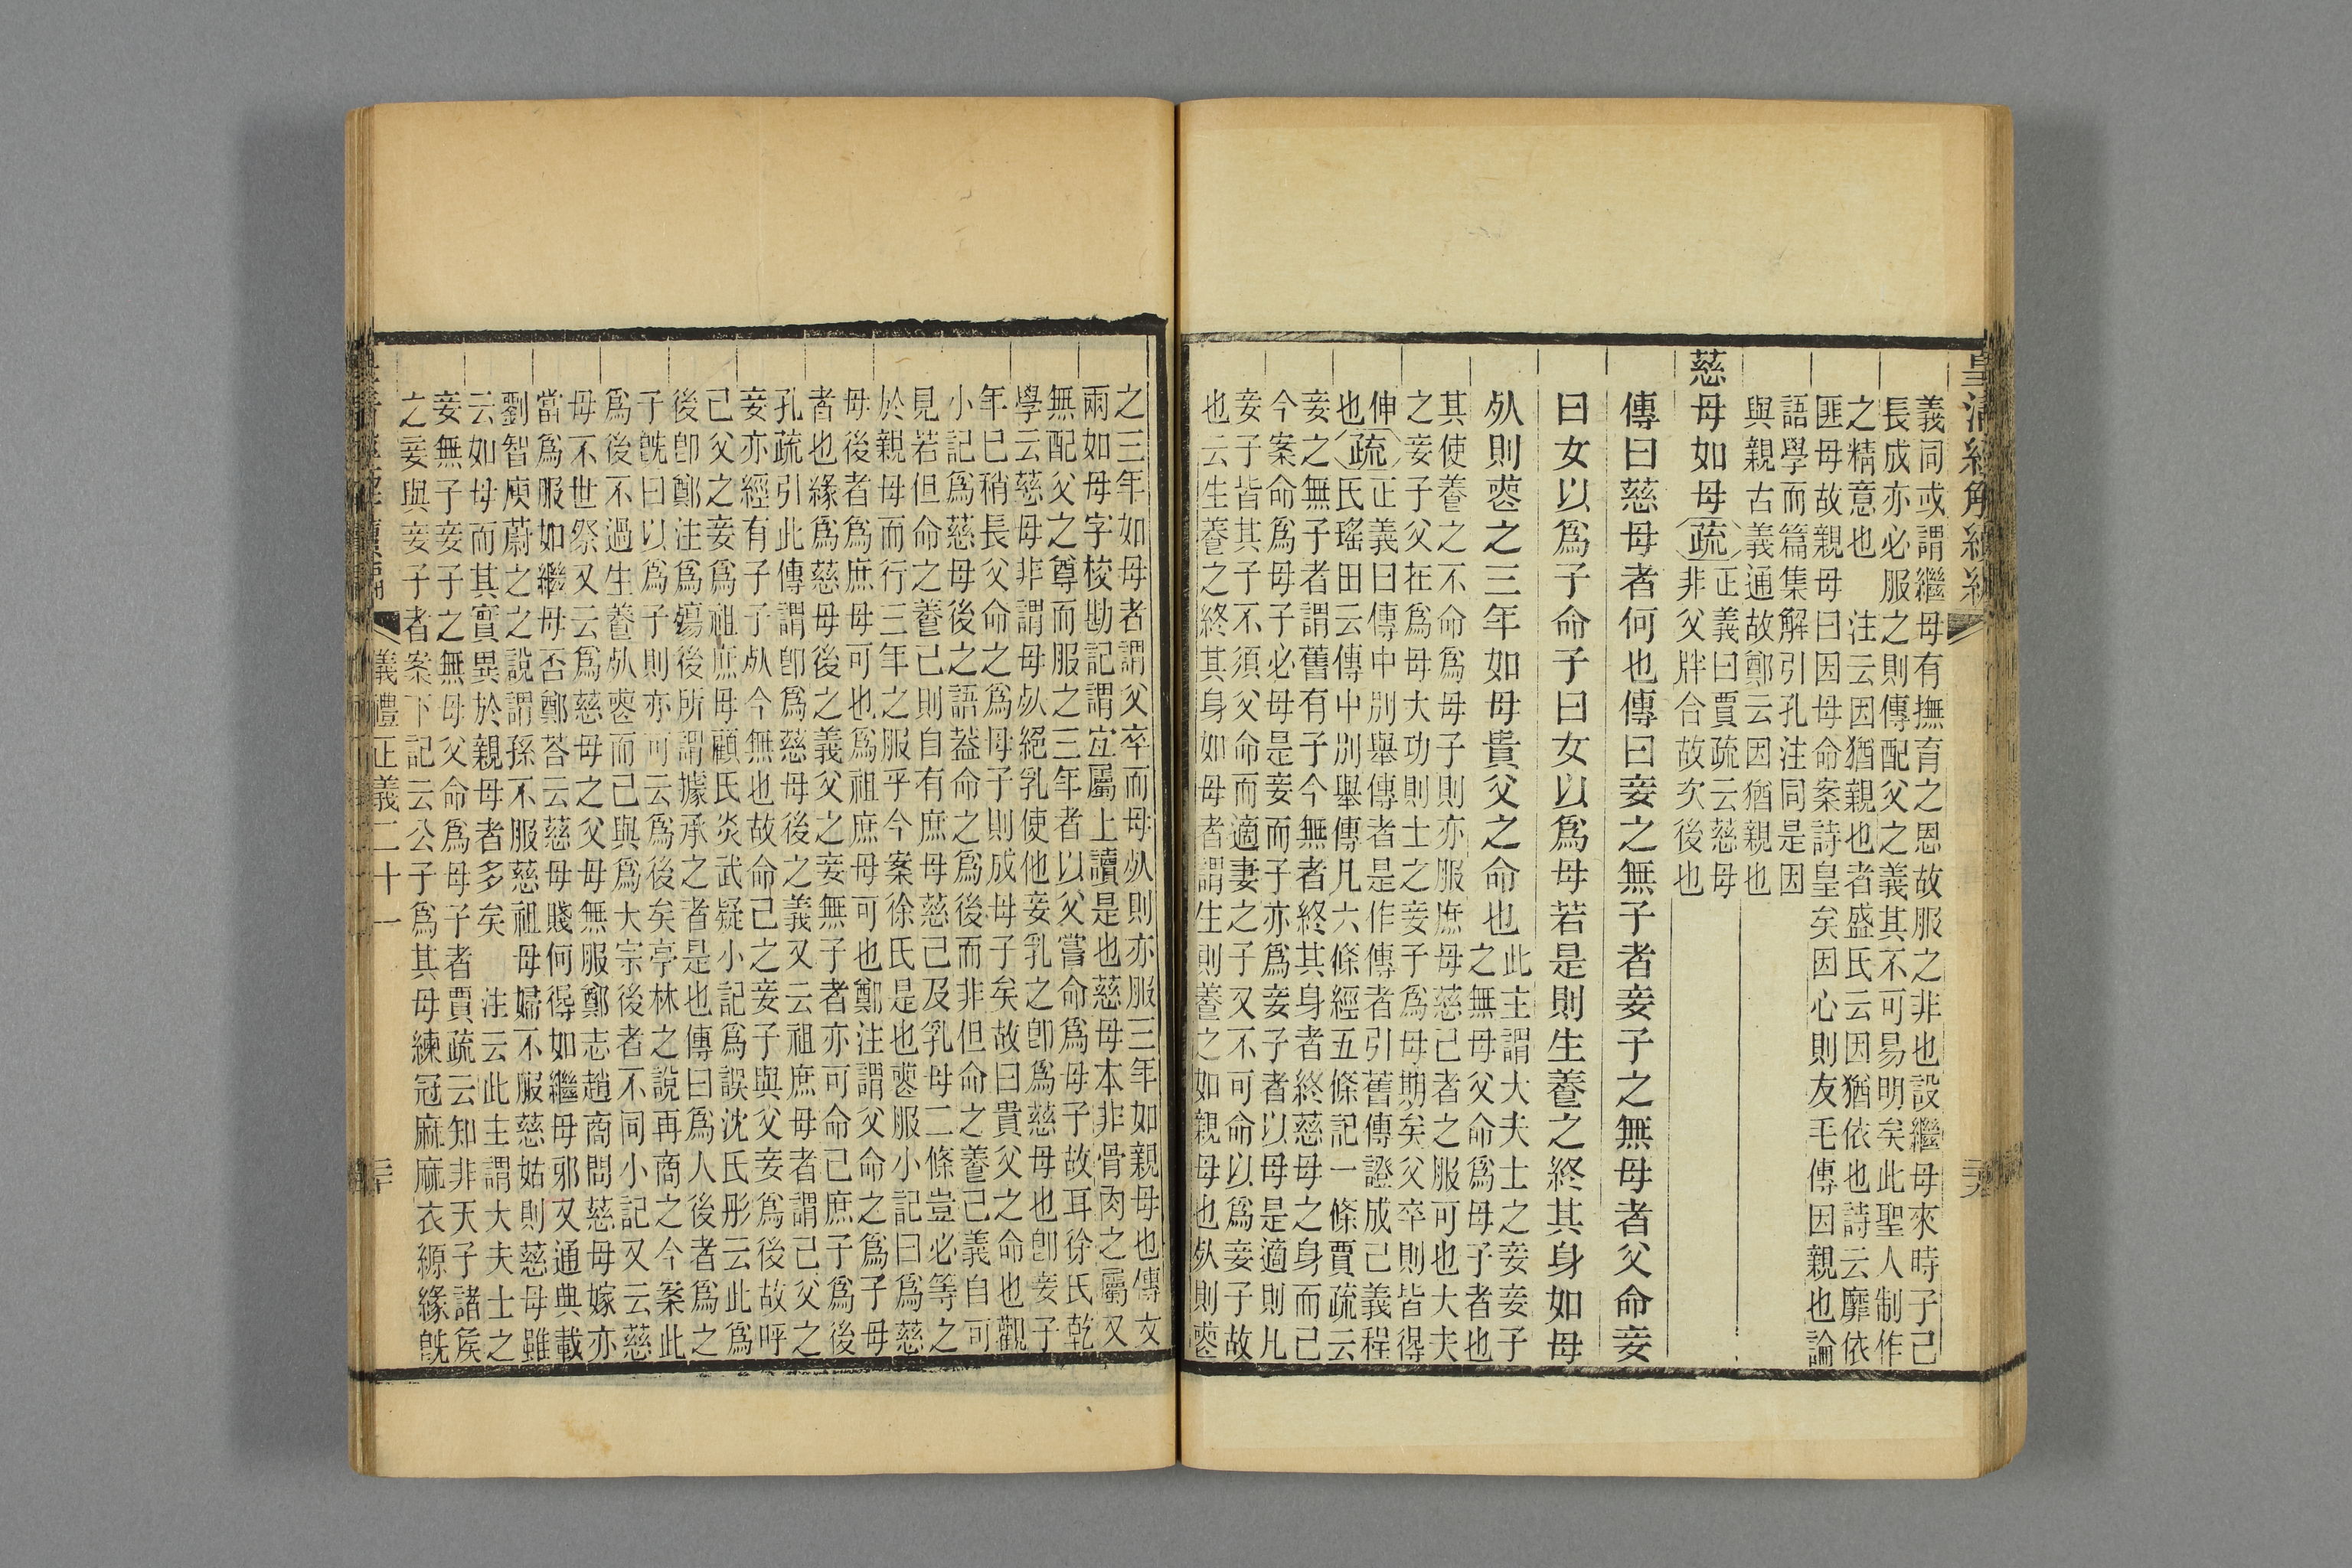 皇清經解續編
義同或謂繼母有撫育之恩故服之非也設繼母來時子己
長成亦必服之則傳配父之義其不可易明矣此聖人制作
之精意也　注云因猶親也者盛氏云因猶依也詩云靡依
匪母故親母曰因母命案詩皇矣因心則友毛傳因親也論
語學而篇集解引孔注同是因
與親古義通故鄭云因猶親也
慈母如母疏
正義曰賈疏云慈母
非父牉合故次後也
傳曰慈母者何也傳曰妾之無子者妾子之無母者父命妾
曰女以爲子命子曰女以爲母若是則生養之終其身如母
死則喪之三年如母貴父之命也
此主謂大夫士之妾妾子
之無母父命爲母子者也
其使養之不命爲母子則亦服庶母慈己者之服可也大夫
之妾子父在爲母大功則士之妾子爲母期矣父卒則皆得
伸
也
疏
正義曰傳中別舉傳者是作傳者引舊傳證成己義程
氏瑤田云傳中別舉傳凡六條經五條記一條賈疏云
妾之無子者謂舊有子今無者終其身者終慈母之身而已
今案命爲母子必母是妾而子亦爲妾子者以母是適則凡
妾子皆其子不須父命而適妻之子又不可命以爲妾子故
也云生養之終其身如母者謂生則養之如親母也死則喪
之三年如母者謂父卒而母死則亦服三年如親母也傳文
兩如母字校勘記謂宜屬上讀是也慈母本非骨肉之屬又
無配父之尊而服之三年者以父嘗命爲母子故耳徐氏乾
學云慈母非謂母死絕乳使他妾乳之卽爲慈母也卽妾子
年已稍長父命之爲母子則成母子矣故曰貴父之命也觀
小記爲慈母後之語葢命之爲後而非但命之養己義自可
見若但命之養己則自有庶母慈己及乳母二條豈必等之
於親母而行三年之服乎今案徐氏是也喪服小記曰爲慈
母後者爲庶母可也爲祖庶母可也鄭注謂父命之爲子母
者也緣爲慈母後之義父之妾無子者亦可命己庶子爲後
孔疏引此傳謂卽爲慈母後之義又云祖庶母者謂己父之
妾亦經有子子死今無也故命己之妾子與父妾爲後故呼
己父之妾爲祖庶母顧氏炎武疑小記爲誤沈氏彤云此爲
後卽鄭注爲殤後所謂據承之者是也傳曰爲人後者爲之
子旣曰以爲子則亦可云爲後矣亭林之說再商之今案此
爲後不過生養死喪而已與爲大宗後者不同小記又云慈
母不世祭又云爲慈母之父母無服鄭志趙商問慈母嫁亦
當爲服如繼母否鄭荅云慈母賤何得如繼母邪又通典載
劉智庾蔚之之說謂孫不服慈祖母婦不服慈姑則慈母雖
云如母而其實異於親母者多矣　注云此主謂大夫士之
妾無子妾子之無母父命爲母子者賈疏云知非天子諸侯
之妾與妾子者案下記云公子爲其母練冠麻麻衣縓緣旣
儀禮正義二十一
三十